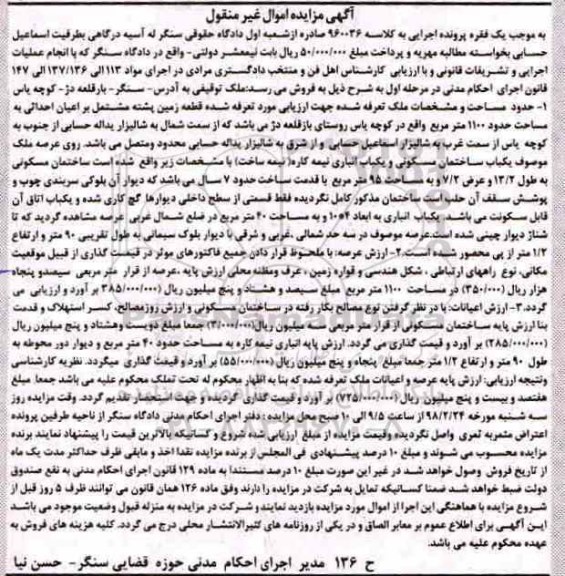 آگهی مزایده اموال غیر منقول
به موجب یک فقره پرونده اجرایی به کلاسه ۹۶۰۰۳۶ صادره ازشعبه اول دادگاه حقوقی سنگر له آسیه درگاهی بطرفیت اسماعیل
حسابی بخواسته مطالبه مهریه و پرداخت مبلغ ۵۰/۰۰۰/۰۰۰ ریال بابت نیمعشر دولتی- واقع در دادگاه سنگر که با انجام عملیات
اجرایی و تشریفات قانونی و با ارزیابی کارشناس اهل فن و منتخب دادگستری مرادی در اجرای مواد ۱۱۳ الی ۱۳۷/۱۳۶ الی ۱۴۷
قانون اجرای احکام مدنی در مرحله اول به شرح ذیل به فروش می رسد:ملک توقیفی به آدرس- سنگر- بازقلعه دژ- کوچه یاس
۱- حدود مساحت و مشخصات ملک تعرفه شده جهت ارزیابی مورد تعرفه شده قطعه زمین پشته مشتمل بر اعیان احداثی به
مساحت حدود ۱۱۰۰ متر مربع واقع در کوچه یاس روستای بازقلعه دژ می باشد که از سمت شمال به شالیزار یداله حسابی از جنوب به
کوچه یاس از سمت غرب به شالیزار اسماعیل حسابی و از شرق به شالیزار یداله حسابی محدود ومتصل می باشد. روی عرصه ملک
موصوف یکباب ساختمان مسکونی و یکباب انباری نیمه کاره( نیمه ساخت) با مشخصات زیر واقع شده است ساختمان مسکونی
به طول ۱۳/۲ و عرض ۷/۲ و به مساحت ۹۵ متر مربع با قدمت ساخت حدود ۷ سال می باشد که دیوار آن بلوکی سربندی چوب و
پوشش سقف آن حلب است ساختمان مذکور کامل نگردیده فقط قسمتی از سطح داخلی دیوارها گچ کاری شده و یکباب اتاق آن
قابل سکونت می باشد. یکباب انباری به ابعاد ۴*۱۰ و به مساحت ۴۰ متر مربع در ضلع شمال غربی عرصه مشاهده گردید که تا
شناژ دیوار چینی شده است.عرصه موصوف در سه حد شمالی ،غربی و شرقی با دیوار بلوک سیمانی به طول تقریبی ۹۰ متر و ارتفاع
۱/۲ متر از پی محصور شده است.۲- ارزش عرصه: با ملحوظ قرار دادن جمیع فاکتورهای موثر در قیمت گذاری از قبیل موقعیت
مکانی، نوع راههای ارتباطی ، شکل هندسی و قواره زمین ، عرف ومظنه محلی ارزش پایه ،عرصه از قرار متر مربعی سیصدو پنجاه
هزار ریال (۳۵۰/۰۰۰) در مساحت ۱۱۰۰ متر مربع مبلغ سیصد و هشتاد و پنج میلیون ریال (۳۸۵/۰۰۰/۰۰۰) بر آورد و ارزیابی می
گردد.۳- ارزش اعیانات: با در نظر گرفتن نوع مصالح بکار رفته در ساختمان مسکونی و ارزش روزمصالح، کسر استهلاک و قدمت
بنا ارزش پایه ساختمان مسکونی از قرار متر مربعی سه میلیون ریال(۳/۰۰۰/۰۰۰) جمعا مبلغ دویست وهشتاد و پنج میلیون ریال
(۲۸۵/۰۰۰/۰۰۰) بر آورد و قیمت گذاری می گردد. ارزش پایه انباری نیمه کاره به مساحت حدود ۴۰ متر مربع و دیوار دور محوطه به
طول ۹۰ متر و ارتفاع ۱/۲ متر جمعا مبلغ پنجاه و پنج میلیون ریال (۵۵/۰۰۰/۰۰۰) بر آورد و قیمت گذاری میگردد. نظریه کارشناسی
ونتیجه ارزیابی: ارزش پایه عرصه و اعیانات ملک تعرفه شده که بنا به اظهار محکوم له تحت تملک محکوم علیه می باشد جمعا مبلغ
هفتصد و بیست و پنج میلیون ریال (۷۲۵/۰۰۰/۰۰۰) بر آورد و قیمت گذاری گردیده و جهت استحضار تقدیم گردد. وقت مزایده روز
سه شنبه مورخه ۹۸/۲/۲۴ از ساعت ۹/۵ الی ۱۰ صبح محل مزایده : دفتر اجرای احکام مدنی دادگاه سنگر از ناحیه طرفین پرونده
اعتراض مثمربه ثمری واصل نگردیده وقیمت مزایده از مبلغ ارزیابی شده شروع و کسانیکه بالاترین قیمت را پیشنهاد نمایند برنده
مزایده محسوب می شوند و مبلغ ۱۰ درصد پیشنهادی فی المجلس از برنده مزایده نقدا اخذ و مابقی ظرف حداکثر مدت یک ماه
از تاریخ فروش وصول خواهد شد در غیر این صورت مبلغ ۱۰ درصد مستندا به ماده ۱۲۹ قانون اجرای احکام مدنی به نفع صندوق
دولت ضبط خواهد شد ضمنا کسانیکه تمایل به شرکت در مزایده را دارند وفق ماده ۱۲۶ همان قانون می توانند ظرف ۵ روز قبل از
شروع مزایده با هماهنگی این اجرا از اموال مورد مزایده بازدید نمایند و شرکت در مزایده به منزله قبول وضعیت موجود می باشد
ایـن آگهـی برای اطلاع عموم بر معابر الصاق و در یکی از روزنامه های کثیرالانتشار محلی درج می گردد. کلیه هزینه های فروش به
عهده محکوم علیه می باشد.
ح ۱۳۶ مدیر اجرای احکام مدنی حوزه قضایی سنگر- حسن نیا